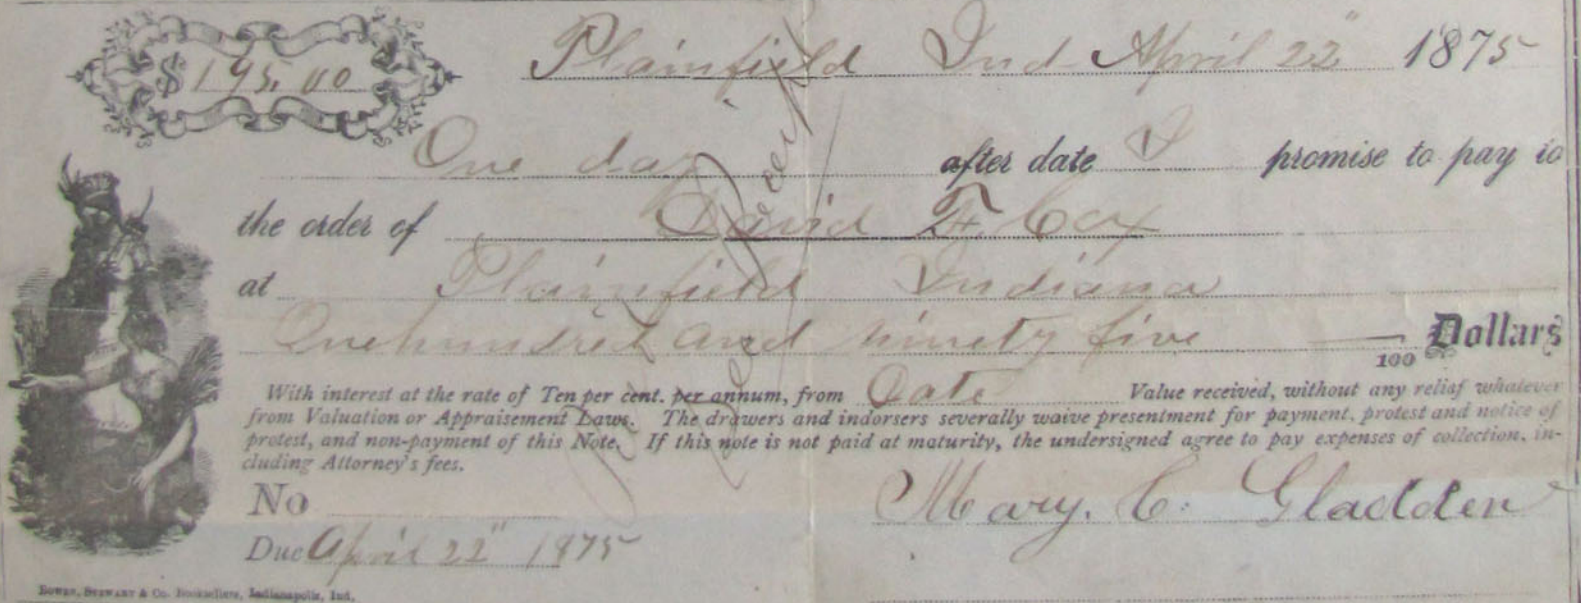 $195.00 Plainfield Ind April 22" 1875
One day after date I promise to pay to
the order of David F. Cox
at Plainfield Indiana
One hundred and ninety five — 100 Dollars
With interest at the rate of Ten per cent. per annum, from Date Value received, without any relief whatever
from Valuation or Appraisement Laws. The drawers and indorsers severally waive presentment for payment, protest and notice of
protest, and non-payment of this Note. If this note is not paid at maturity, the undersigned agree to pay expenses of collection, in-
cluding Attorney's fees.
No Mary. C. Gladden
Due April 22" 1875
Bowen, Stewart & Co. Booksellers, Indianapolis, Ind.